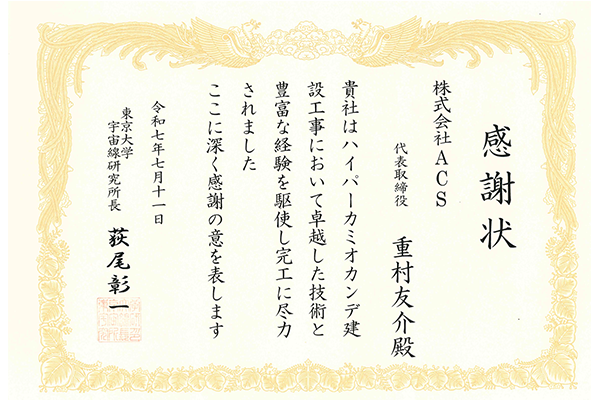 感謝状
株式会社ACS
代表取締役 重村友介殿
貴社はハイパーカミオカンデ建
設工事において卓越した技術と
豊富な経験を駆使し完工に尽力
されました
ここに深く感謝の意を表します
令和七年七月十一日
東京大学
宇宙線研究所長 荻尾彰一